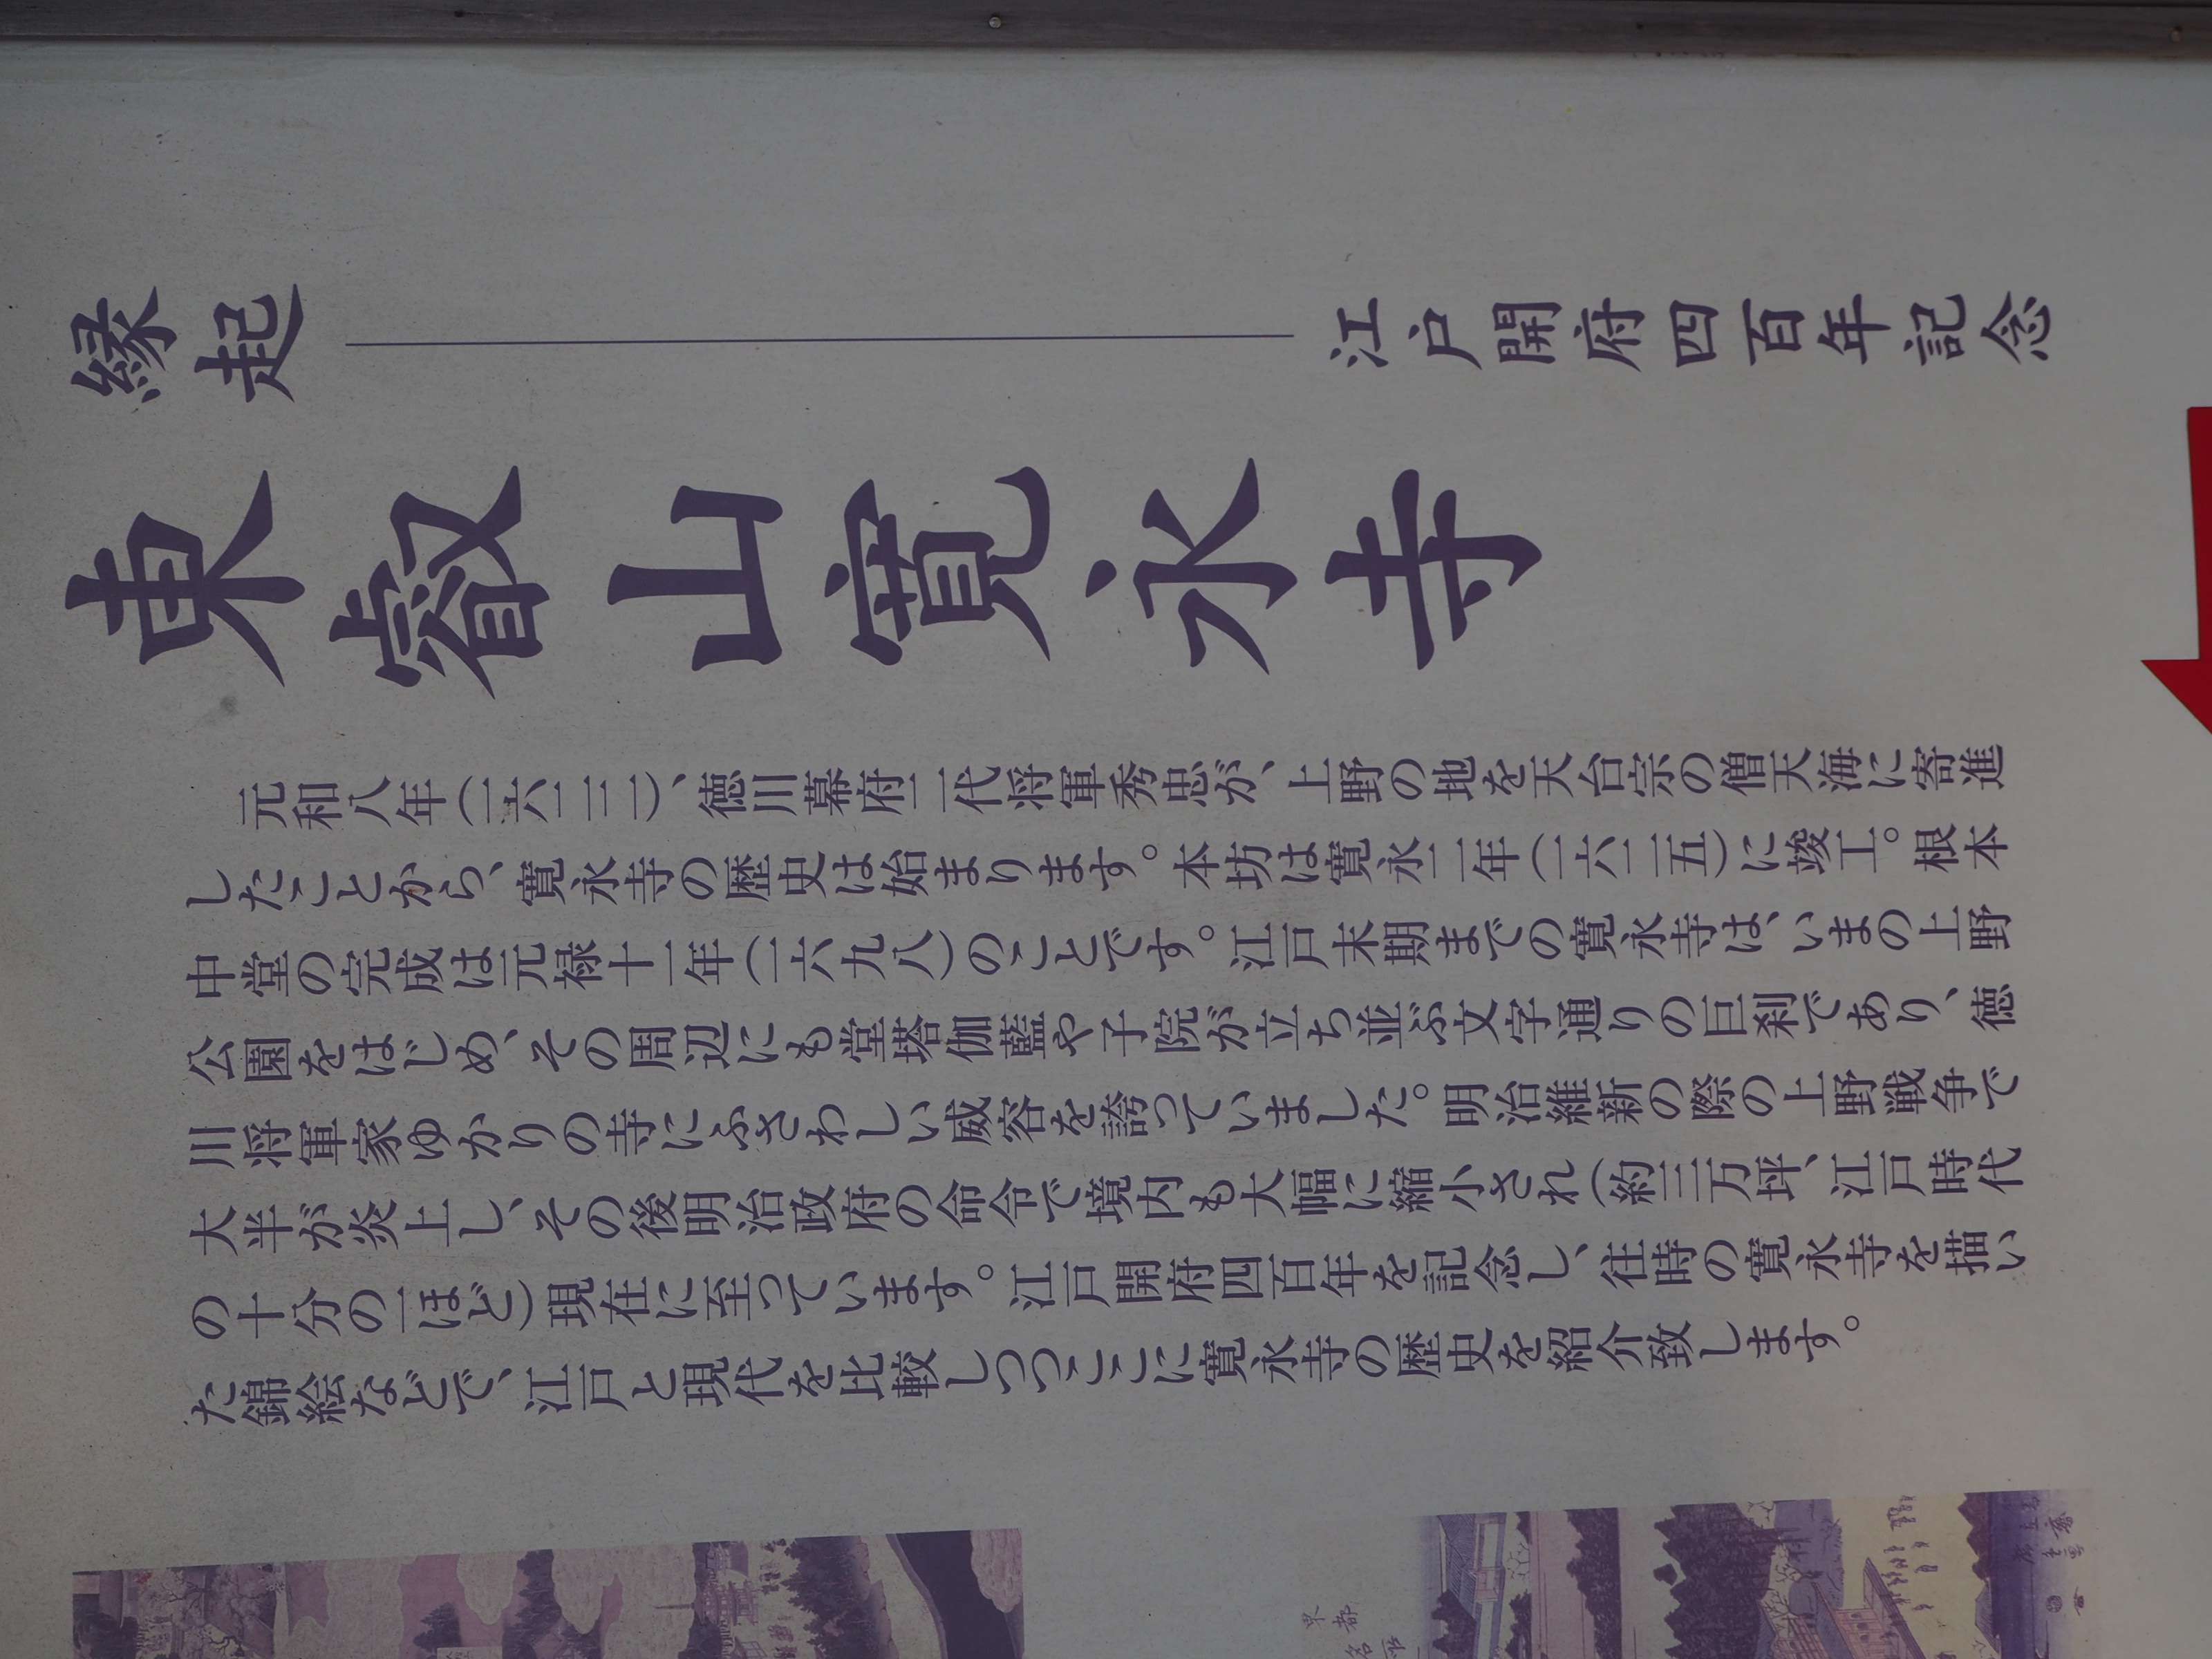 縁起
江戸開府四百年記念
東叡山寛永寺
元和八年(一六二二)、徳川幕府二代将軍秀忠が、上野の地を天台宗の僧天海に寄進
したことから、寛永寺の歴史は始まります。本坊は寛永二年(一六二五)に竣工。根本
中堂の完成は元禄十一年(一六九八)のことです。江戸末期までの寛永寺は、いまの上野
公園をはじめ、その周辺にも堂塔伽藍や子院が立ち並ぶ文字通りの巨刹であり、徳
川将軍家ゆかりの寺にふさわしい威容を誇っていました。明治維新の際の上野戦争で
大半が炎上し、その後明治政府の命令で境内も大幅に縮小され(約三万坪、江戸時代
の十分の一ほど)現在に至っています。江戸開府四百年を記念し、往時の寛永寺を描い
た錦絵などで、江戸と現代を比較しつつここに寛永寺の歴史を紹介致します。
東都
名所